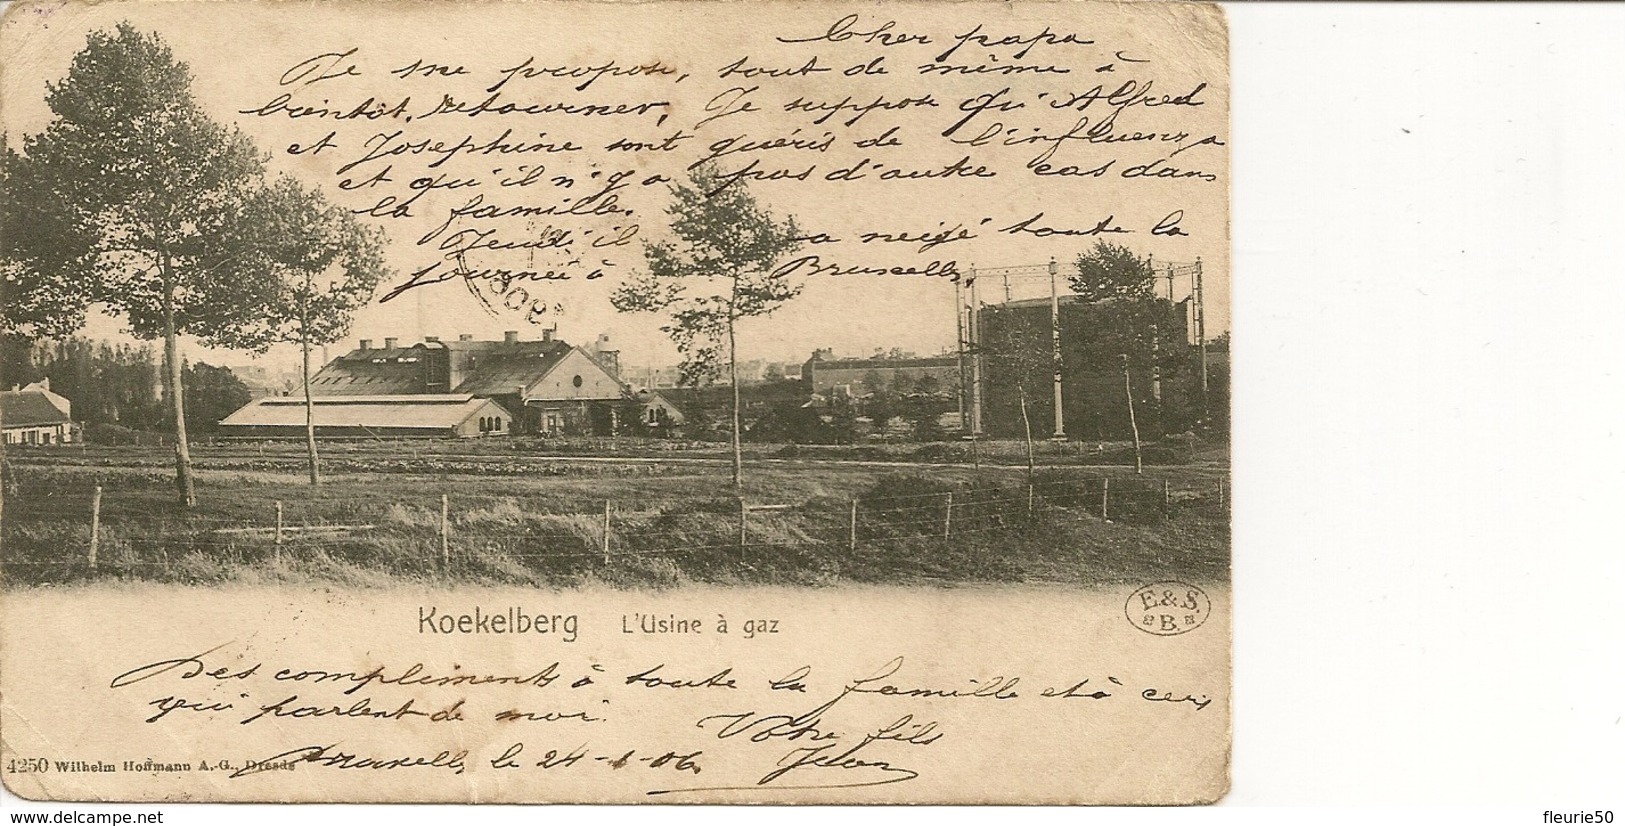 Cher papa
Je me propose, tout de même à
bientôt, retourner, Je suppose qu'Alfred
et Josephine sont guéris de l'influenza
et qu'il n'y a pas d'autre cas dans
la famille.
Jeudi il a neigé toute la
journée à Bruxelles
Koekelberg L'Usine à gaz
E.&S.
B.
Des compliments à toute la famille et à ceux
qui parlent de moi.
Votre fils
Bruxelles, le 24-1-06. Jean
4250 Wilhelm Hoffmann A.-G., Dresde
delcampe.net
fleurie50